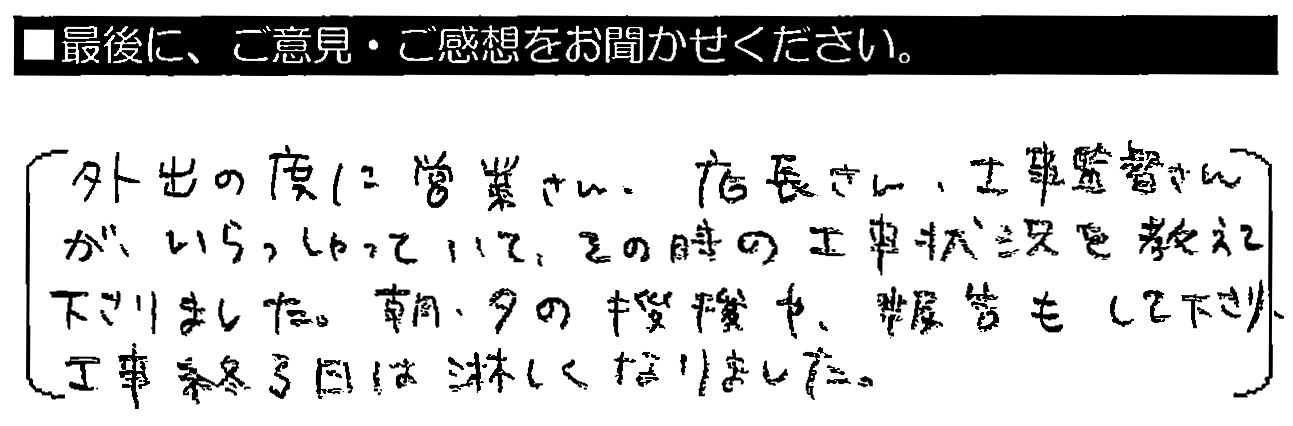 ■最後に、ご意見・ご感想をお聞かせください。
外出の度に営業さん、店長さん、工事監督さん
が、いらっしゃっていて、その時の工事状況を教えて
下さりました。朝・夕の挨拶や、報告もして下さり、
工事終る日は淋しくなりました。